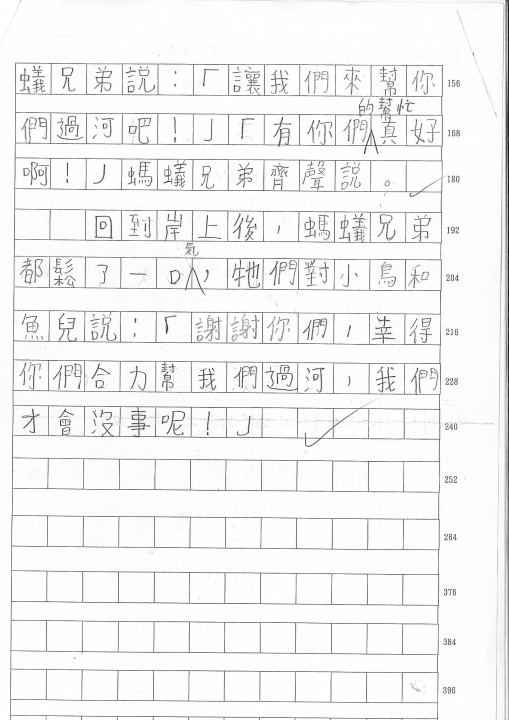 蟻兄弟說：「讓我們來幫你 156
的幫忙
們過河吧！」「有你們真好 168
啊！」螞蟻兄弟齊聲說。 180
回到岸上後，螞蟻兄弟 192
氣
都鬆了一口，牠們對小鳥和 204
魚兒說：「謝謝你們，幸得 216
你們合力幫我們過河，我們 228
才會沒事呢！」 240
252
264
376
384
396